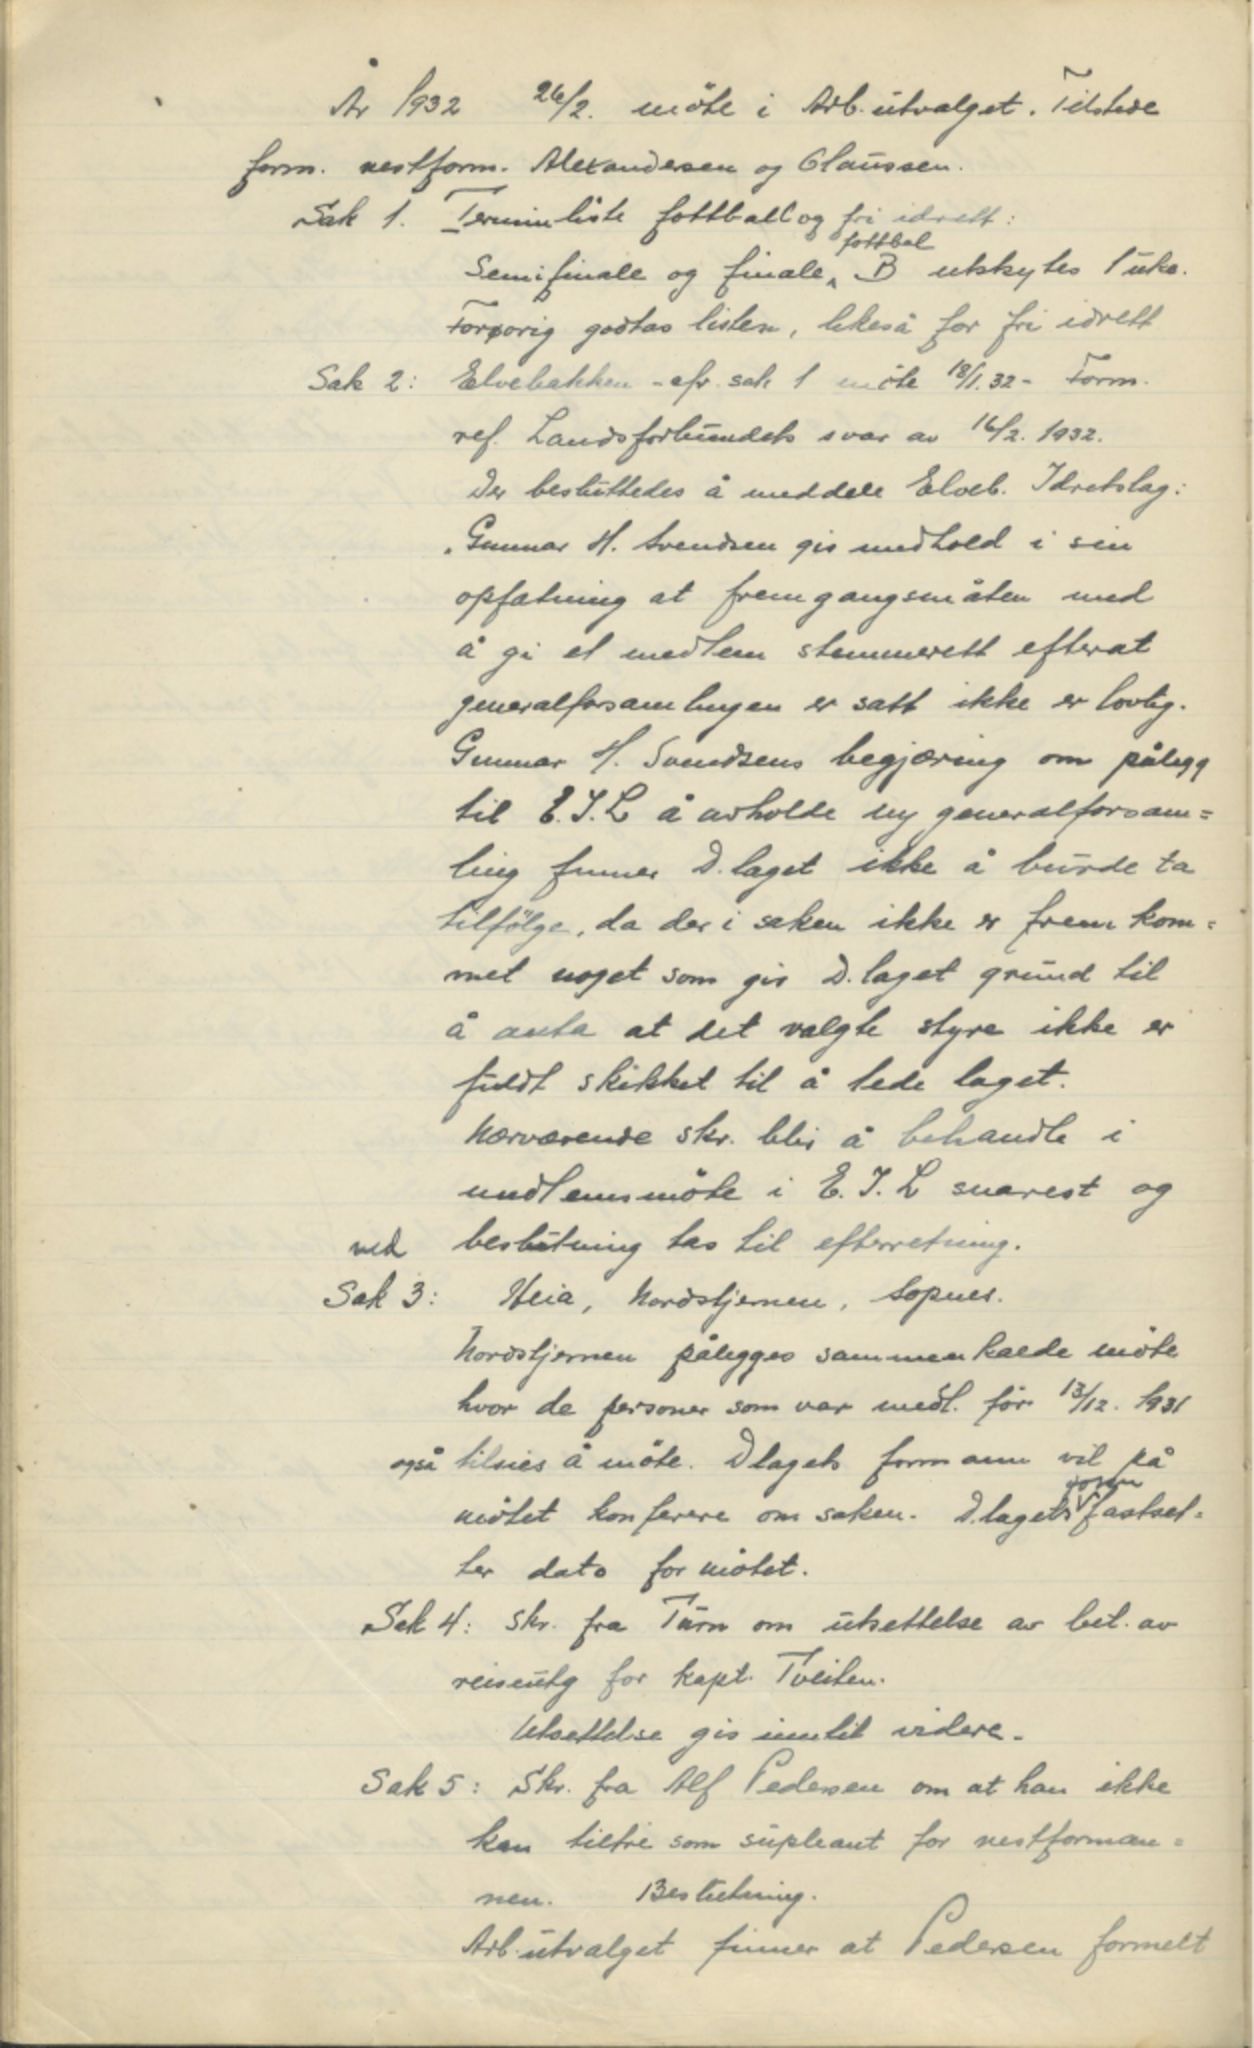 År 1932 26/2. möte i Arb.utvalget. Tilstede
form. nestform. Alexandersen og Claussen.
Sak 1. Terminliste fottball og fri idrett:
fottbal
Semifinale og finale B utskytes 1 uke.
Forøvrig godtas listen, likeså for fri idrett
Sak 2: Elvebakken - cfr. sak 1 möte 18/1.32 - Form.
ref. Landsforbundets svar av 16/2. 1932.
Der besluttedes å meddele Elveb. Idretslag:
"Gunnar H. Svendsen gis medhold i sin
opfatning at fremgangsmåten med
å gi et medlem stemmerett efterat
generalforsamlingen er satt ikke er lovlig.
Gunnar H. Svendsens begjæring om pålegg
til E.I.L å avholde ny generalforsam=
ling finner D.laget ikke å burde ta
tilfölge, da der i saken ikke er frem kom=
met noget som gir D.laget grund til
å anta at det valgte styre ikke er
fuldt skikket til å lede laget.
Nærværende skr. blir å behandle i
medlemsmöte i E.I.L snarest og
ved beslutning tas til efterretning.
Sak 3: Heia, Nordstjernen, Sopnes.
Nordstjernen pålegges sammenkalde möte
hvor de personer som var medl. før 13/12. 1931
også tilsies å möte. Dlagets formann vil på
mötet konferere om saken. D.lagets fastset=
ter dato for mötet.
Sak 4: Skr. fra Turn om utsettelse av bet. av
reiseutg for kapt. Tveiten.
Utsettelse gis inntil videre.
Sak 5: Skr. fra Alf Pedersen om at han ikke
kan tiltre som supleant for nestforman=
nen. Beslutning.
Arb.utvalget finner at Pedersen formelt